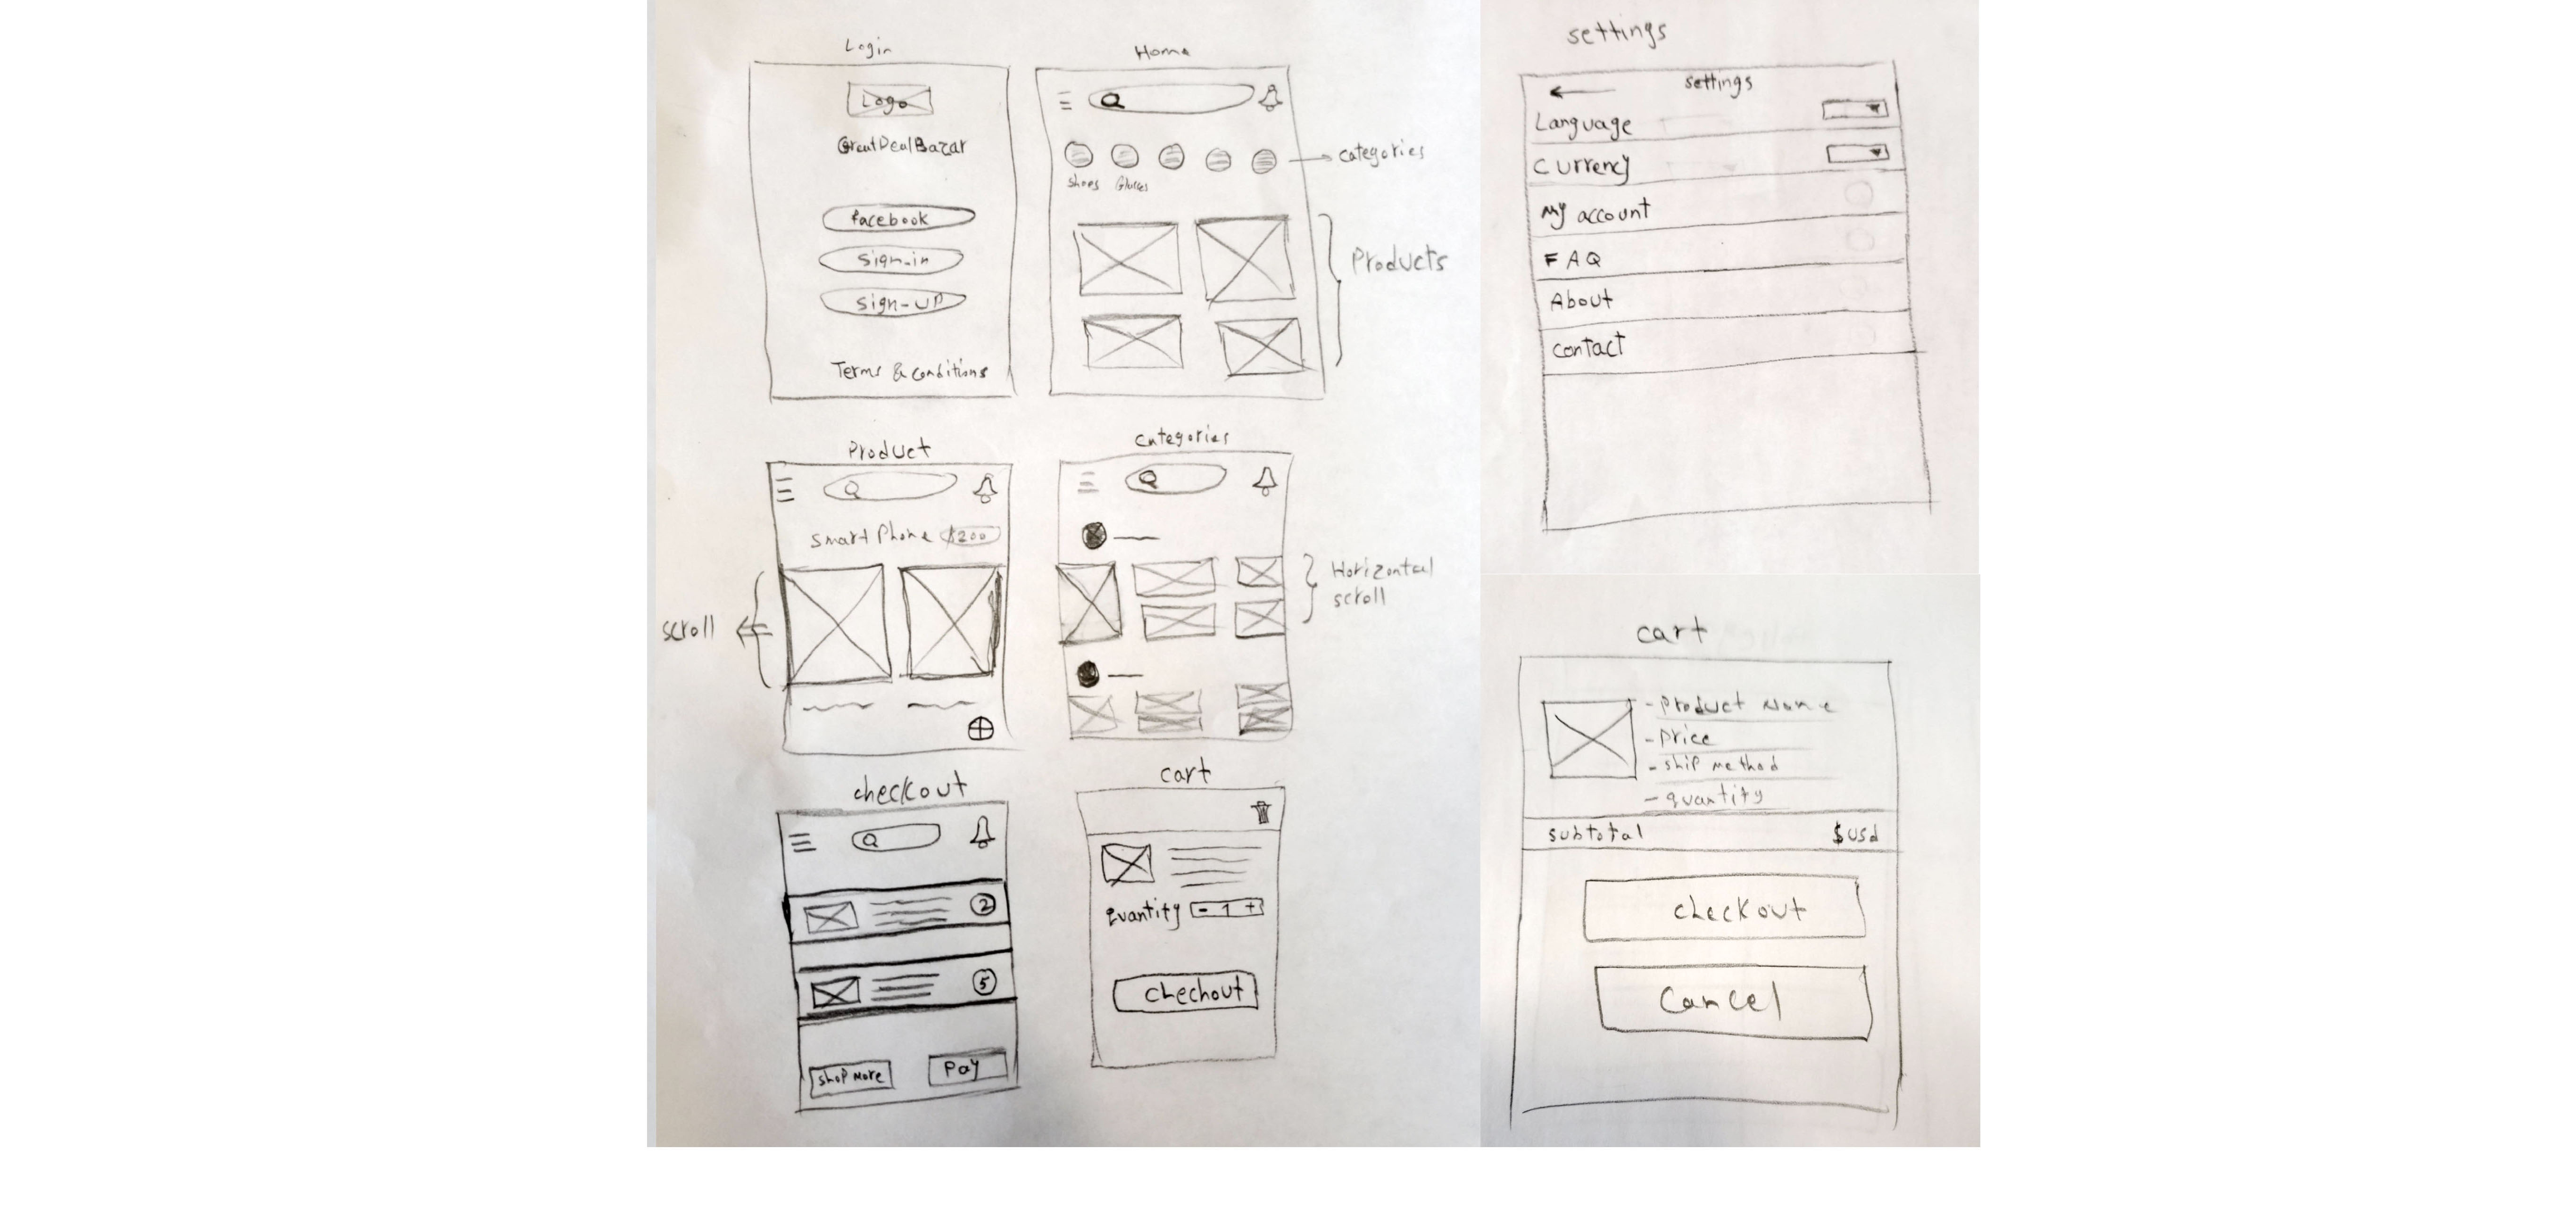 Login
Logo
GreatDealBazar
facebook
sign-in
sign-up
Terms & conditions
Home
shoes Glasses
categories
Products
Product
smart Phone $200
scroll
categories
Horizontal
scroll
checkout
2
5
shop more
Pay
cart
quantity - 1 +
chechout
settings
settings
Language
Currency
My account
FAQ
About
contact
cart
- Product Name
- Price
- ship method
- quantity
subtotal $usd
checkout
Cancel